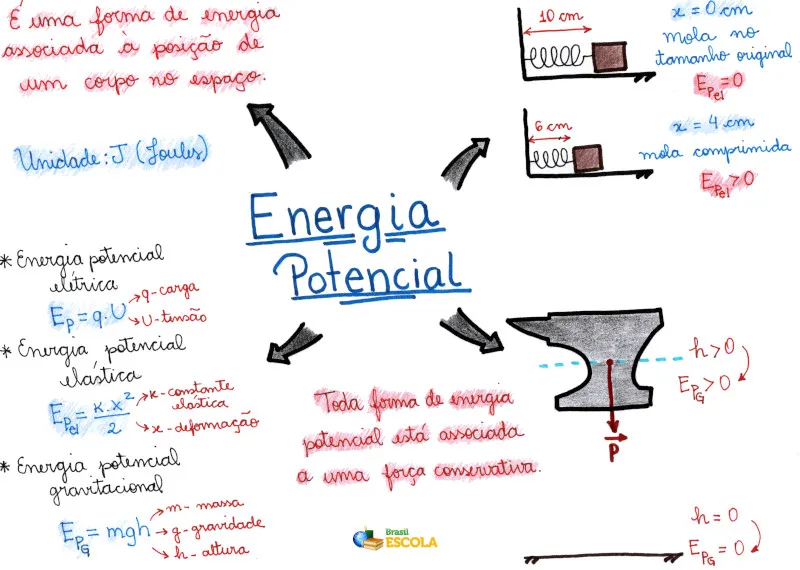 É uma forma de energia
associada à posição de
um corpo no espaço.
Unidade: J (Joules)
10 cm
x = 0 cm
mola no
tamanho original
Epel = 0
6 cm
x = 4 cm
mola comprimida
Epel > 0
Energia
Potencial
* Energia potencial
elétrica
Ep = q.U
q - carga
U - tensão
* Energia potencial
elástica
Epel = K.x²/2
K - constante
elástica
x - deformação
* Energia potencial
gravitacional
EpG = mgh
m - massa
g - gravidade
h - altura
Toda forma de energia
potencial está associada
a uma força conservativa.
h > 0
EpG > 0
P
h = 0
EpG = 0
Brasil
ESCOLA